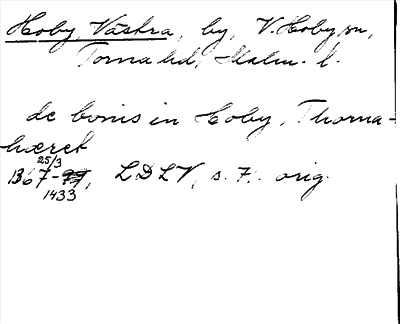 Hoby, Västra, by, V. Hoby sn,
Torna hd, Malm. l.
de bonis in Hoby, Thorna-
hæret
25/3
1367-77, LDLV, s. 7. orig.
1433